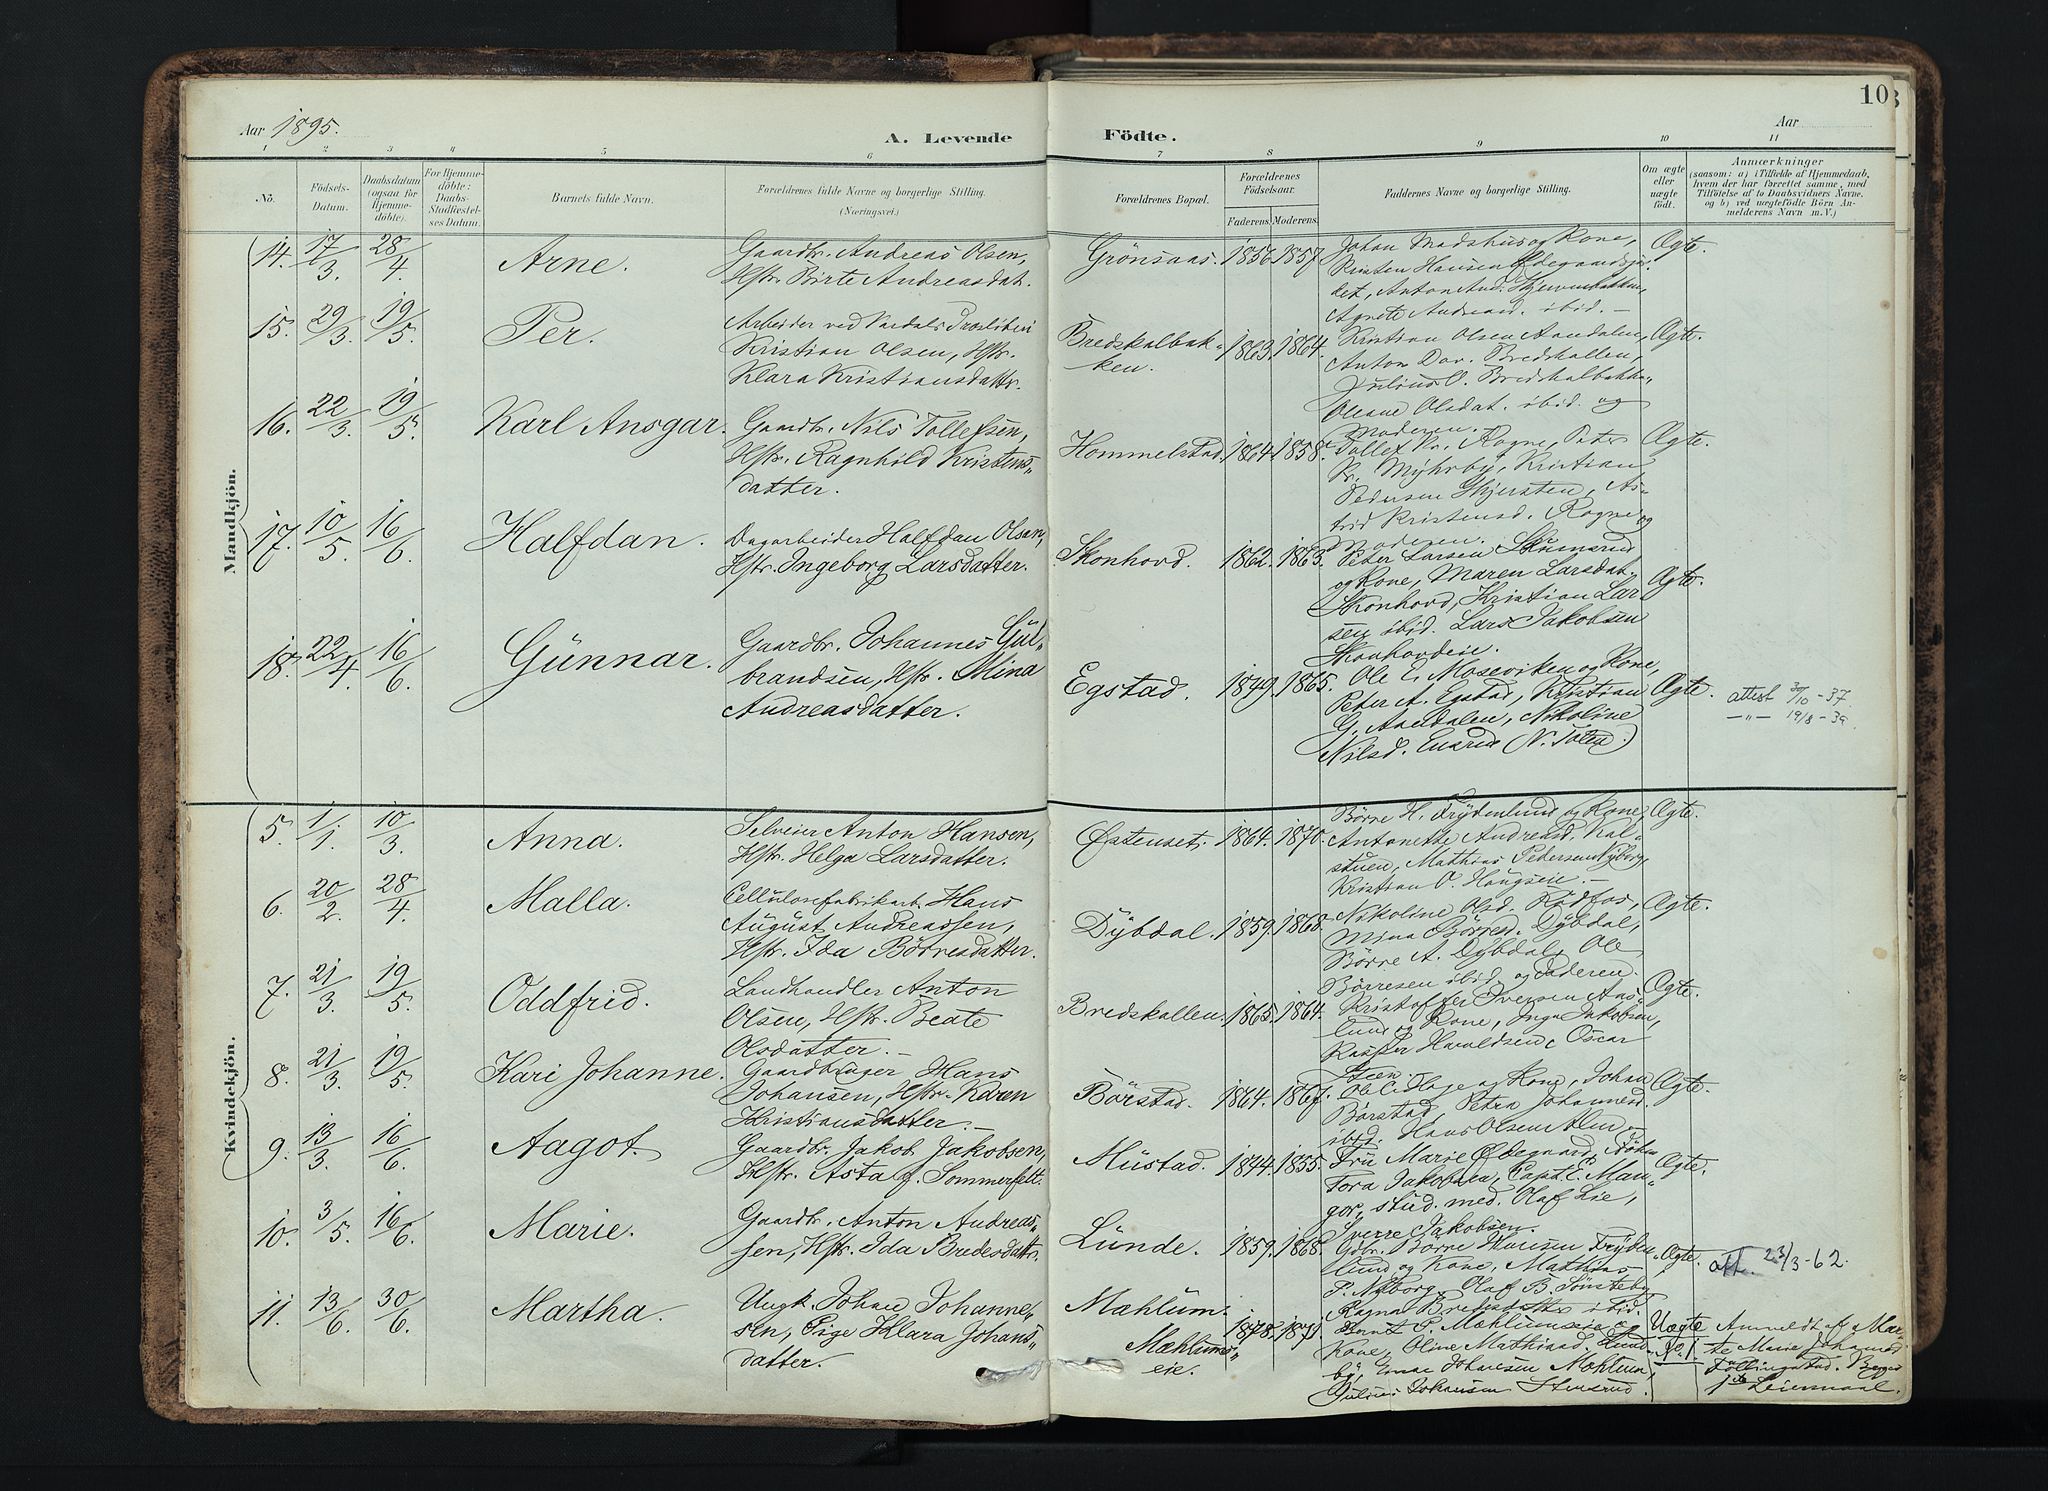 10
Aar 1895.
A. Levende Födte.
Aar
1 2 3 4 5 6 7 8 9 10 11
No.
Födsels-Datum.
Daabsdatum (ogsaa for Hjemme-döbte).
For Hjemme-döbte: Daabs-Stadfæstel-ses Datum.
Barnets fulde Navn.
Forældrenes fulde Navne og borgerlige Stilling.
(Næringsvei.)
Forældrenes Bopæl.
Forældrenes Födselsaar.
Faderens. Moderens.
Faddernes Navne og borgerlige Stilling.
Om ægte eller uægte födt.
Anmærkninger
(saasom: a) i Tilfælde af Hjemmedaab, hvem der har forrettet samme, med Tilföielse af to Daabsvidners Navne. og b) ved uægtefödte Börn Anmelderens Navn m. V.)
Mandkjön.
14. 17/3. 28/4 Arne. Gaardbr. Andreas Olsen,
Hstr. Birte Andreasdat.
Grönsaas. 1856. 1857.
Johan Madshus og Kone,
Kristen Hansen
det, Anton And.
Agnete Andreasd. ibid. –
Ægte.
15. 29/3. 19/5. Per. Arbeider ved Vardals
Kristian Olsen, Hstr.
Klara Kristiansdattr.
Bredskalbak-
ken.
1863. 1864.
Kristian Olsen Aandalen,
Anton Dav. Bredskallen,
Julius O. Bredskalbakken
Oleane Olsdat. ibid. og
Moderen.
Ægte.
16. 22/3. 19/5. Karl Ansgar. Gaardbr. Nils Tollefsen,
Hstr. Ragnhild Kristens-
datter.
Hommelstad. 1864. 1858.
Tollef Kr. Rogne, Peter
Kr. Myhrby, Kristian
Pedersen Skjersten, As-
trid Kristensd. Rogne og
Moderen.
Ægte.
17. 10/5. 16/6 Halfdan. Dagarbeider Halfdan Olsen,
Hstr. Ingeborg Larsdatter.
Skonhovd. 1862. 1863.
Peter Larsen
og Kone, Maren Larsdat.
Skonhovd, Kristian Lar-
sen ibid. Lars Jakobsen
Skonhovdeie.
Ægte.
18. 22/4. 16/6. Gunnar. Gaardbr. Johannes Gul-
brandsen, Hstr. Mina
Andreasdatter.
Egstad. 1849. 1865.
Ole E. Moseviken og Kone,
Peter A. Egstad, Kristian
G. Aandalen, Nikoline
Nilsd. (N. Toten.)
Ægte.
attest 30/10 – 37.
–"– 19/8 – 39.
Kvindekjön.
5. 1/1. 10/3. Anna. Selveier Anton Hansen,
Hstr. Helga Larsdatter.
Østenset. 1864. 1870.
Børre H. Frydenlund og Kone,
Antonette Andreasd. Kal-
stuen, Mathias Pedersen Nyborg,
Kristian O. Haugseie. –
Ægte.
6. 20/2. 28/4 Malla. Cellulosefabrikarb. Hans
August Andreassen,
Hstr. Ida Börresdatter.
Dybdal. 1859. 1868.
Nikoline Olsd. Rödfos,
Mina Börresd. Dybdal,
Börre A. Dybdal, Ole
Börresen ibid. og Faderen.
Ægte.
7. 21/3. 19/5. Oddfrid. Landhandler Anton
Olsen, Hstr. Beate
Olsdatter. –
Bredskallen. 1865. 1864.
Kristoffer Iversen Aas-
lund og Kone, Inga Jakobsen,
Kasper Haraldsen, Oscar
Steen.
Ægte.
8. 21/3. 19/5. Kari Johanne. Gaardbruger Hans
Johansen, Hstr. Karen
Kristiansdatter. –
Börstad. 1864. 1867.
Ole C. Hage og Kone, Johan
Börstad, Petra Johannesd.
ibid. Hans Olsen Alm. –
Ægte.
9. 13/3. 16/6. Aagot. Gaardbr. Jakob Jakobsen,
Hstr. Asta f. Sommerfelt.
Mustad. 1844. 1855.
Fru Marie Ødegaard, Frøken
Tora Jakobsen, Capt. E. Man-
gor, stud. med. Olaf Lie,
Sverre Jakobsen.
Ægte.
10. 3/5. 16/6. Marie. Gaardbr. Anton Andreas-
sen, Hstr. Ida Bredesdattr.
Lunde. 1859. 1868.
Gdbr. Börre Hansen Fryden-
lund og Kone, Mathias
P. Nyborg, Olaf B. Sönsteby,
Ragna Bredesdattr ibid.
Ægte.
att. 23/3 – 62.
11. 13/6. 30/6. Martha. Ungk. Johan Johanne-
sen, Pige Klara Johans-
datter.
Mæhlum.
Mæhlums-
eie.
1878. 1871.
P. Mæhlumseie og
Kone, Oline Mathiasd. Lund-
by, Johansen Mæhlum,
Julius Johansen Stensrud.
Uægte
No. 1.
Anmeldt af Mar-
te Marie Johannesd.
Begges
1ste Leiermaal.